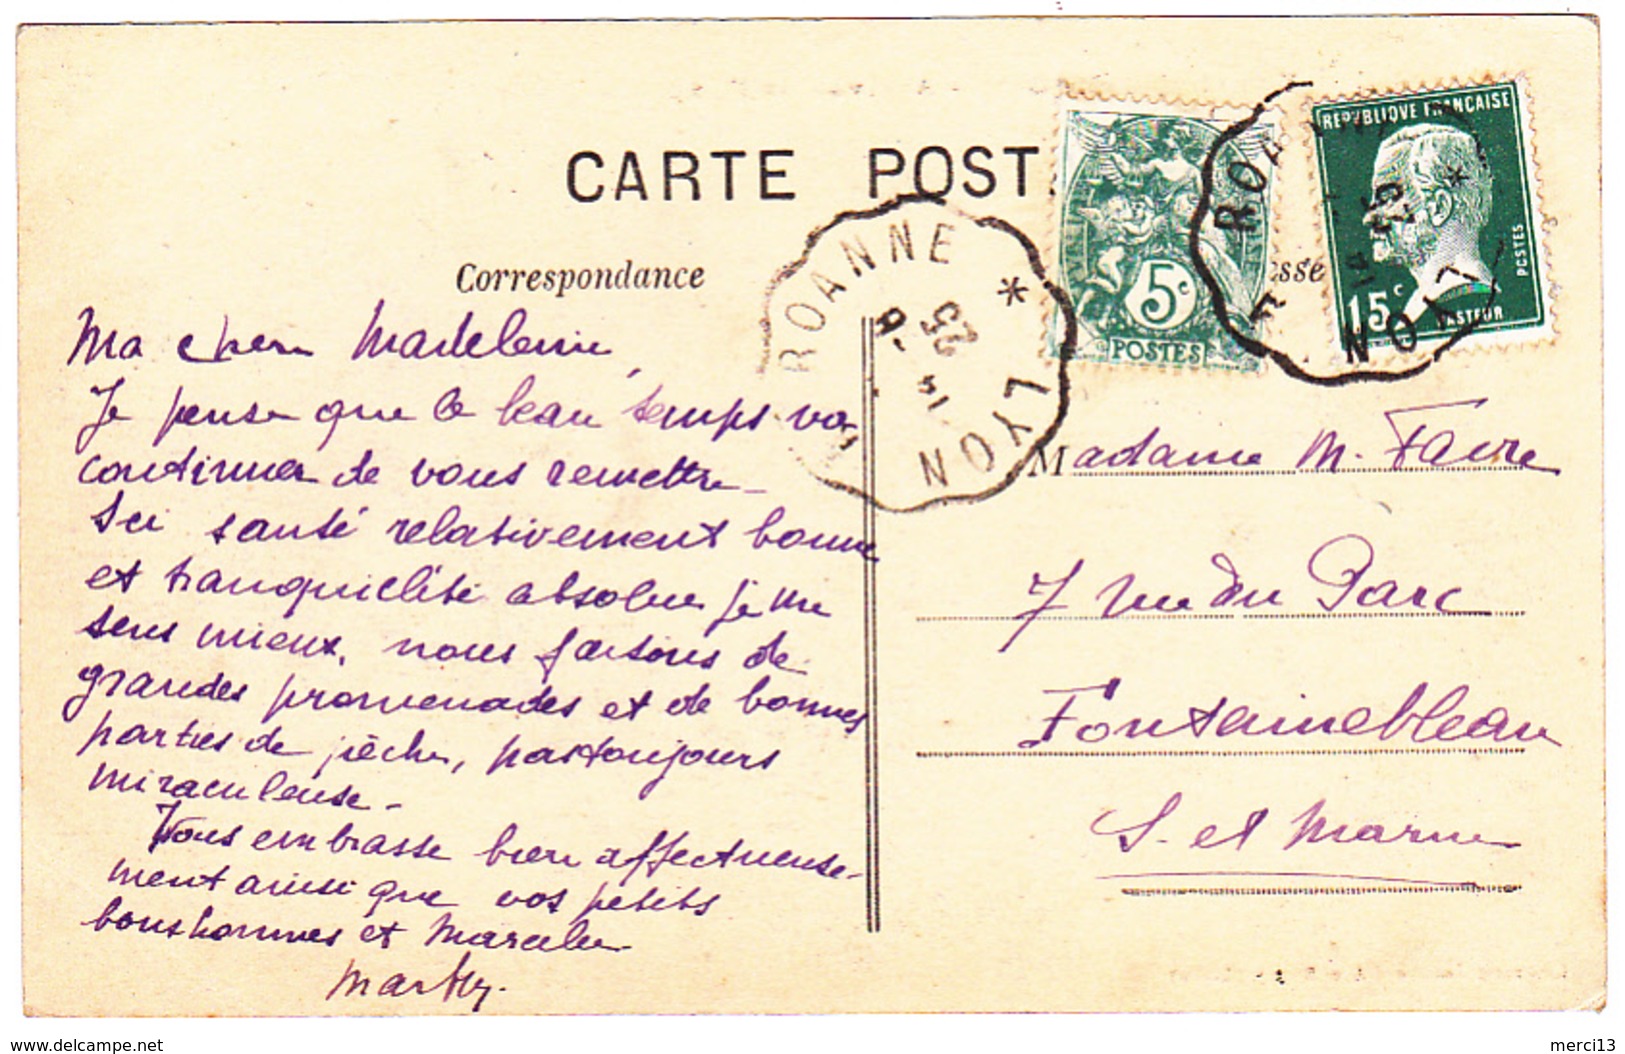 CARTE POST
Correspondance
esse
Ma chère Madeleine,
Je pense que le beau temps va
continuer de vous remettre
Ici santé relativement bonne
et tranquilité absolue je me
sens mieux, nous faisons de
grandes promenades et de bonnes
parties de pêche, pas toujours
miraculeuse -
Vous embrasse bien affectueuse-
ment ainsi que vos petits
bonshommes et Marcelle
Marthy.
ROANNE * LYON
25
5c
POSTES
REPUBLIQUE FRANCAISE
15c
PASTEUR
POSTES
ROA
LYON *
25
Madame M. Favre
7 rue du Parc
Fontainebleau
S. et Marne
www.delcampe.net
merci13